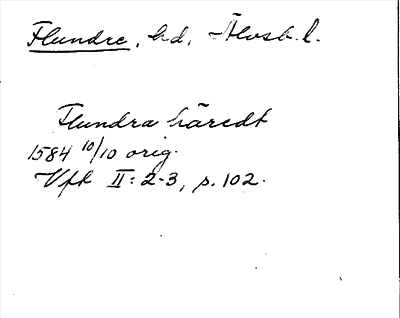 Flundre, hd, Älvsb. l.
Flundra häredt
1584 10/10 orig.
Vft II: 2-3, s. 102.